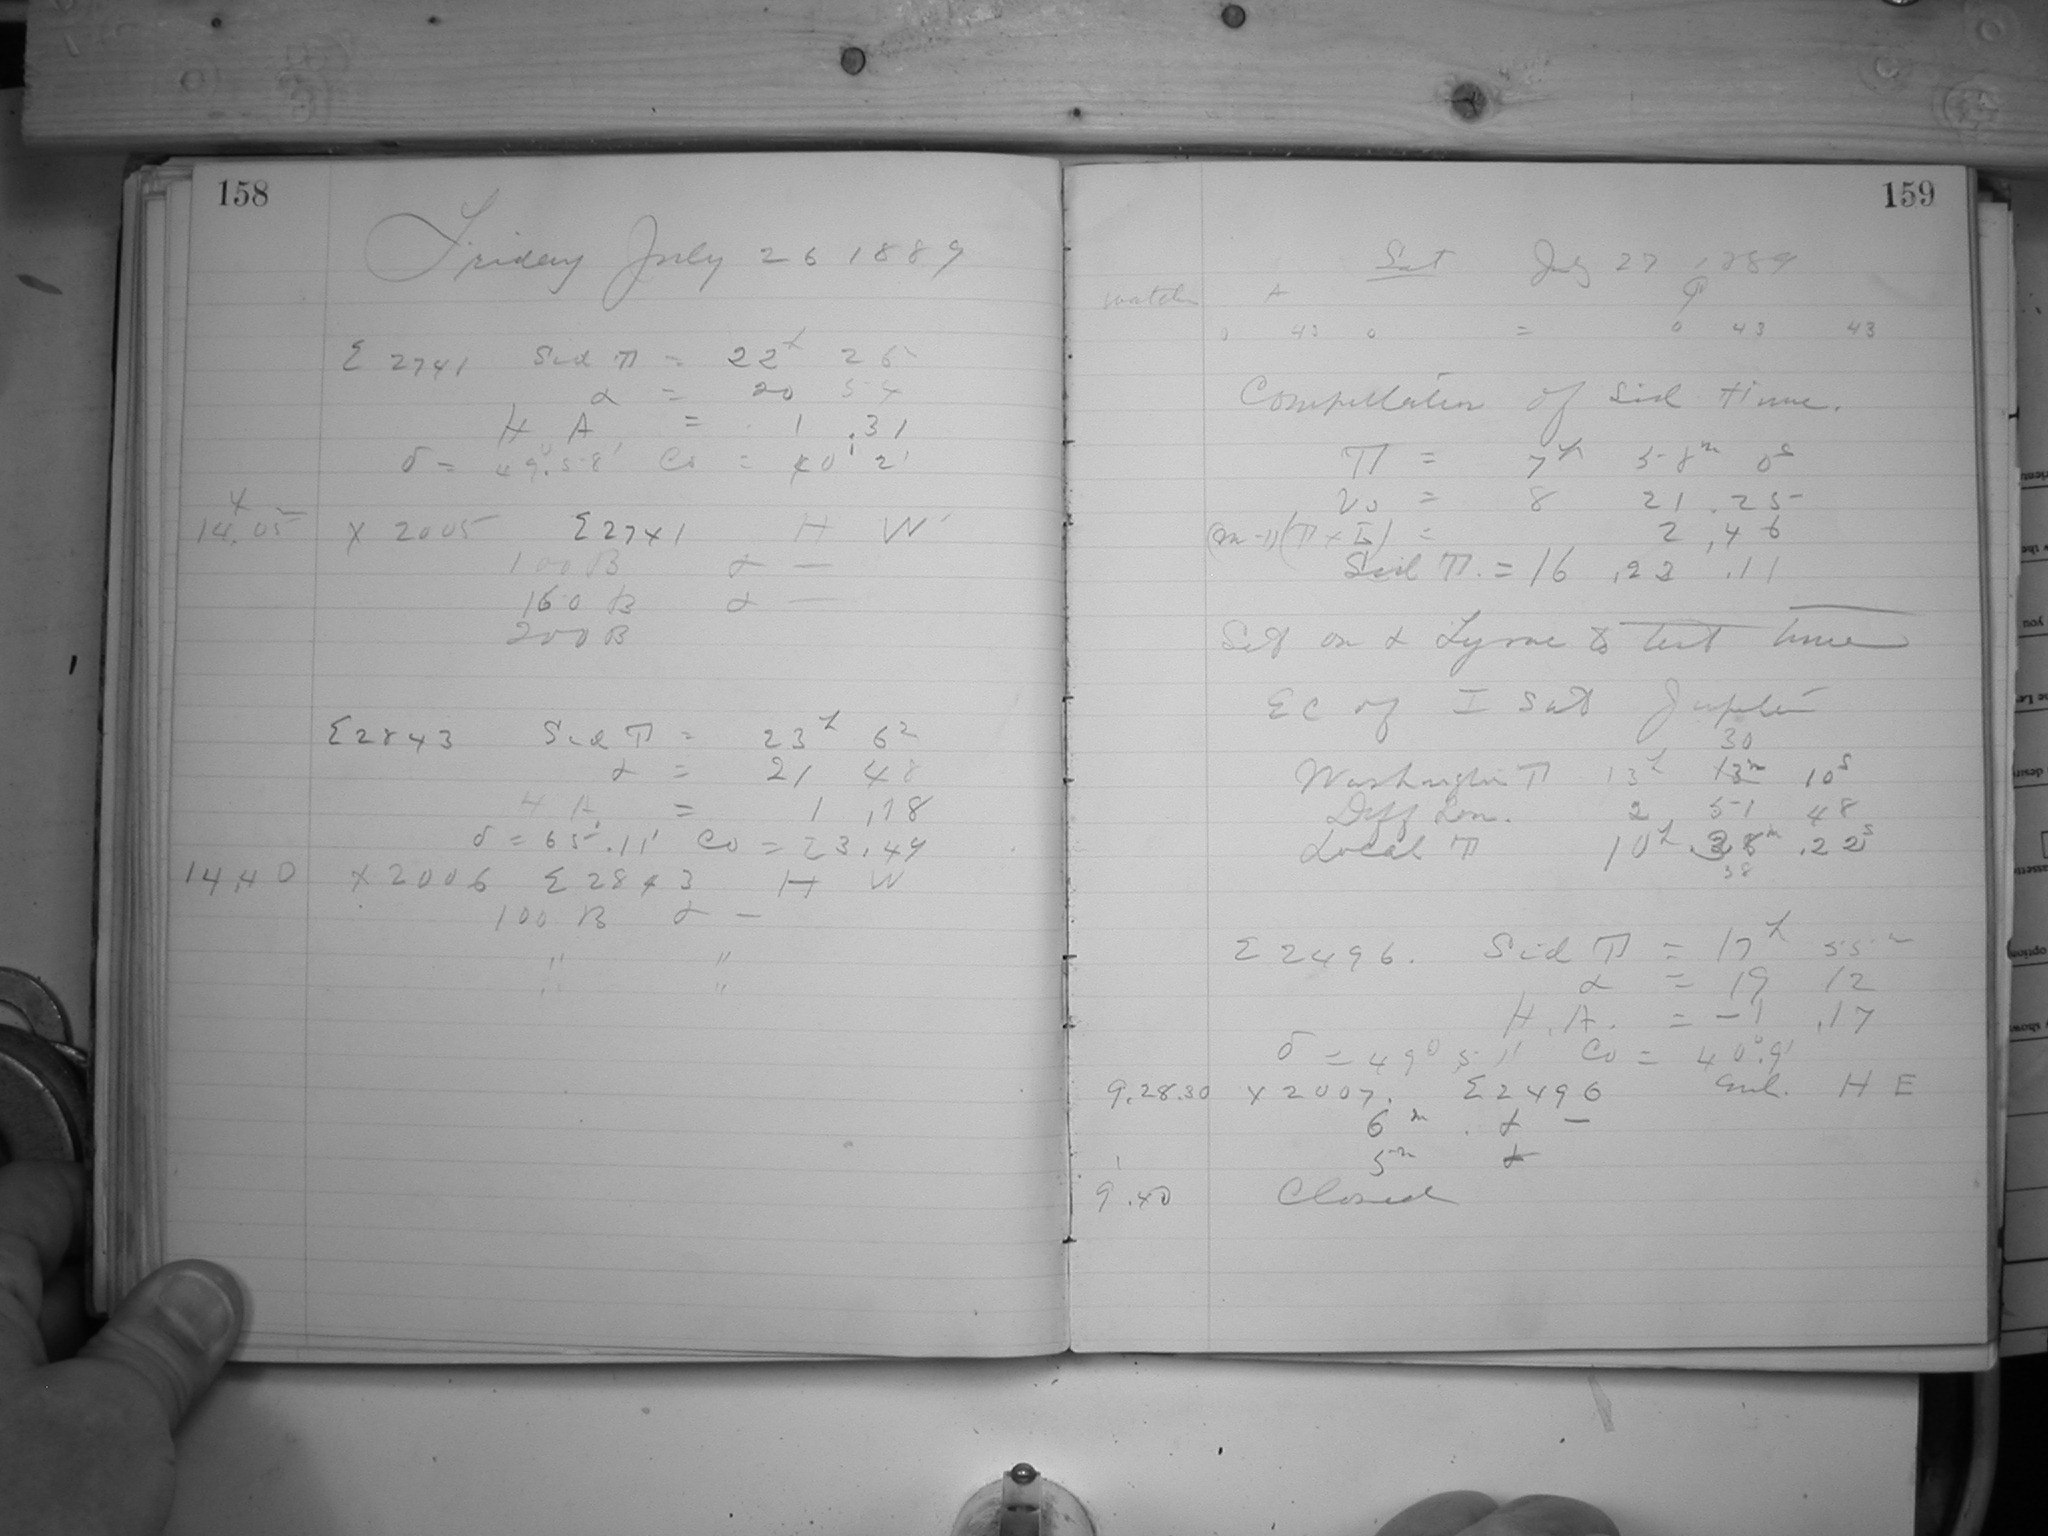 158
Friday July 26 1889
Σ 2741 Sid T = 22h 25
α = 20 54
H A = 1 .31
δ = 49°.58' Co = 40° 2'
14.05 × 2005 Σ2741 H W
100 B α —
160 B α —
200 B
Σ2843 Sid T = 23h 6m
α = 21 48
H A = 1 .18
δ = 65°.11' Co = 23.49
14.40 × 2006 Σ 2843 H W
100 B α —
" "
" "
159
Sat July 27 1889
watch A
0 43 0 = 0 43 43
Compultation of Sid time.
T = 7h 58m 0s
V0 = 8 21 .25
(m-1)(T + L) = 2 .46
Sid T. = 16 .22 .11
Set on α Lyrae to test time
EC of I Sat Jupiter
30
Washington T 13h 13m 10s
Diff Lon. 2 51 48
Local T 10h .38m .22s
38
Σ 2496. Sid T = 17h 55m
α = 19 12
H. A. = -1 .17
δ = 49° 51' Co = 40°.9'
9.28.30 × 2007. Σ2496 H E
6m . α —
5m α
9.40 Closed